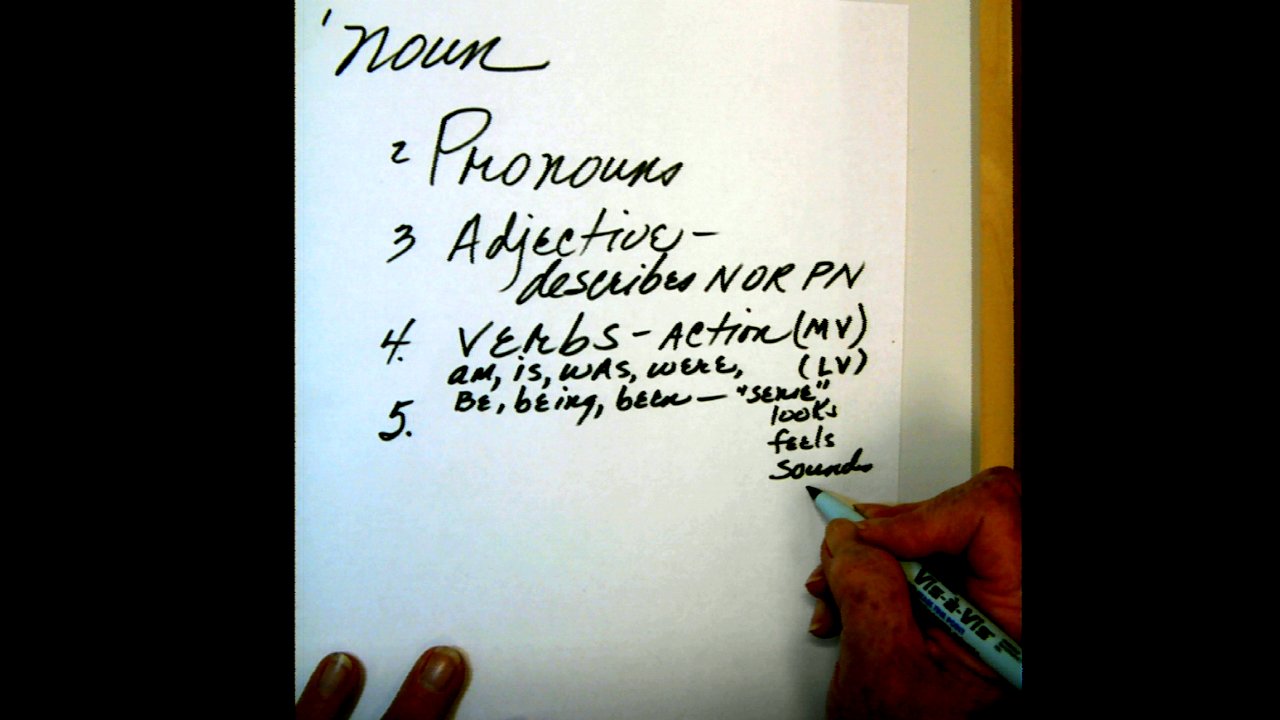 1 noun
2 Pronouns
3 Adjective -
describes N OR PN
4. VERbS - ACtion (MV)
am, is, wAs, were, (LV)
BE, being, been - "sense"
5. looks
feels
sounds
VIS-À-VIS